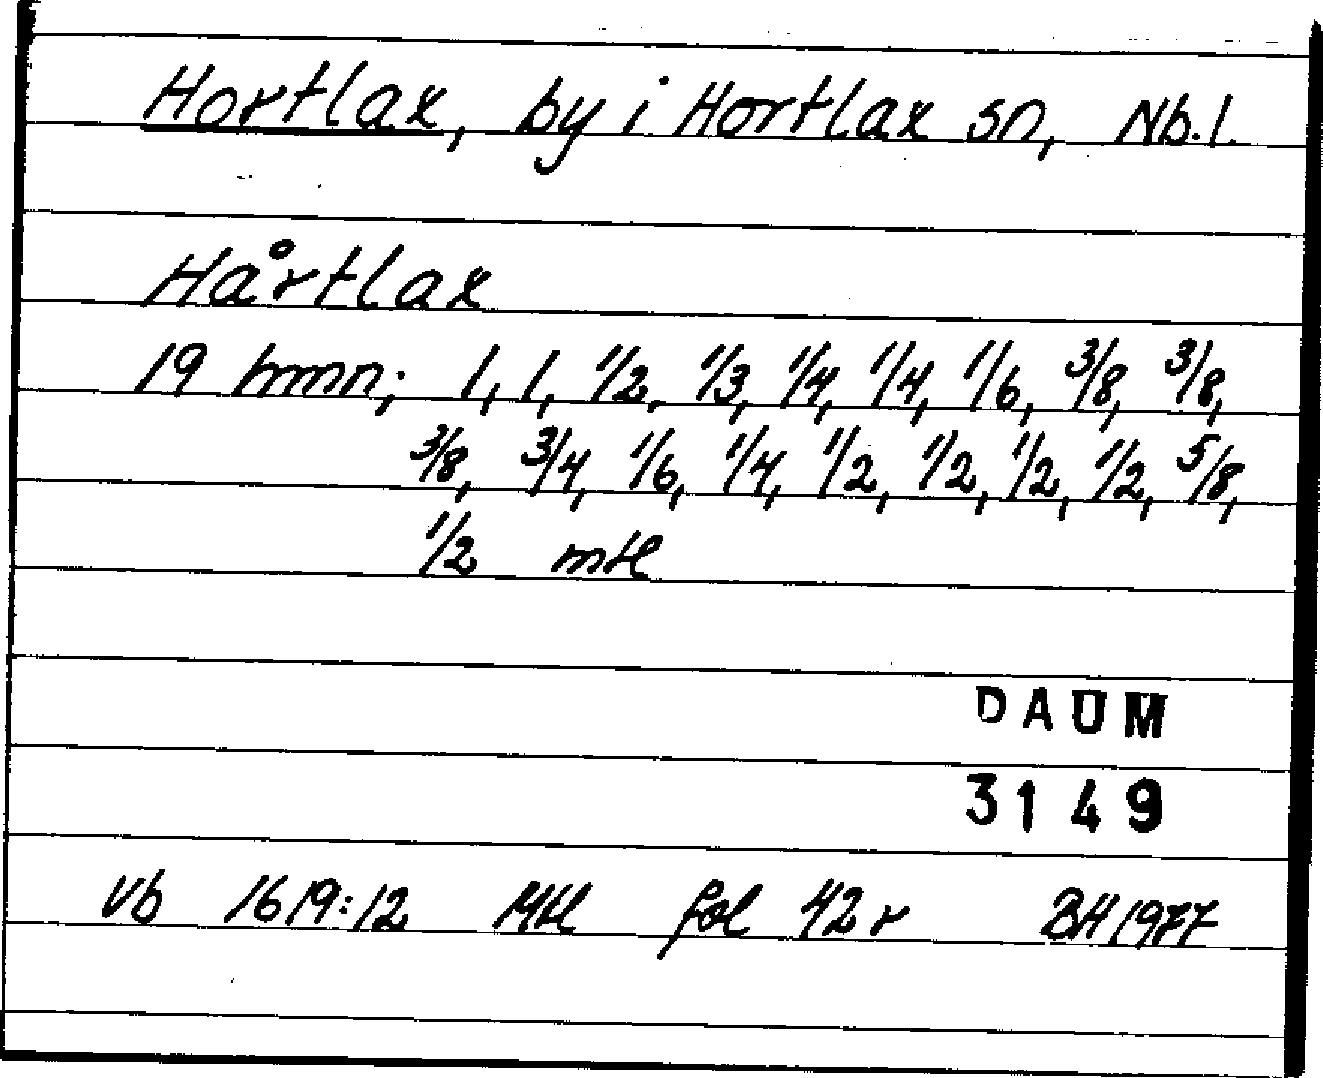 Hortlax, by i Hortlax sn, Nb.l.
Hårtlax
19 hmn; 1, 1, 1/2, 1/3, 1/4, 1/4, 1/6, 3/8, 3/8,
3/8, 3/4, 1/6, 1/4, 1/2, 1/2, 1/2, 1/2, 5/8,
1/2 mtl
DAUM
3149
Vb 1619:12 Mtl fol 42 r BH 1977